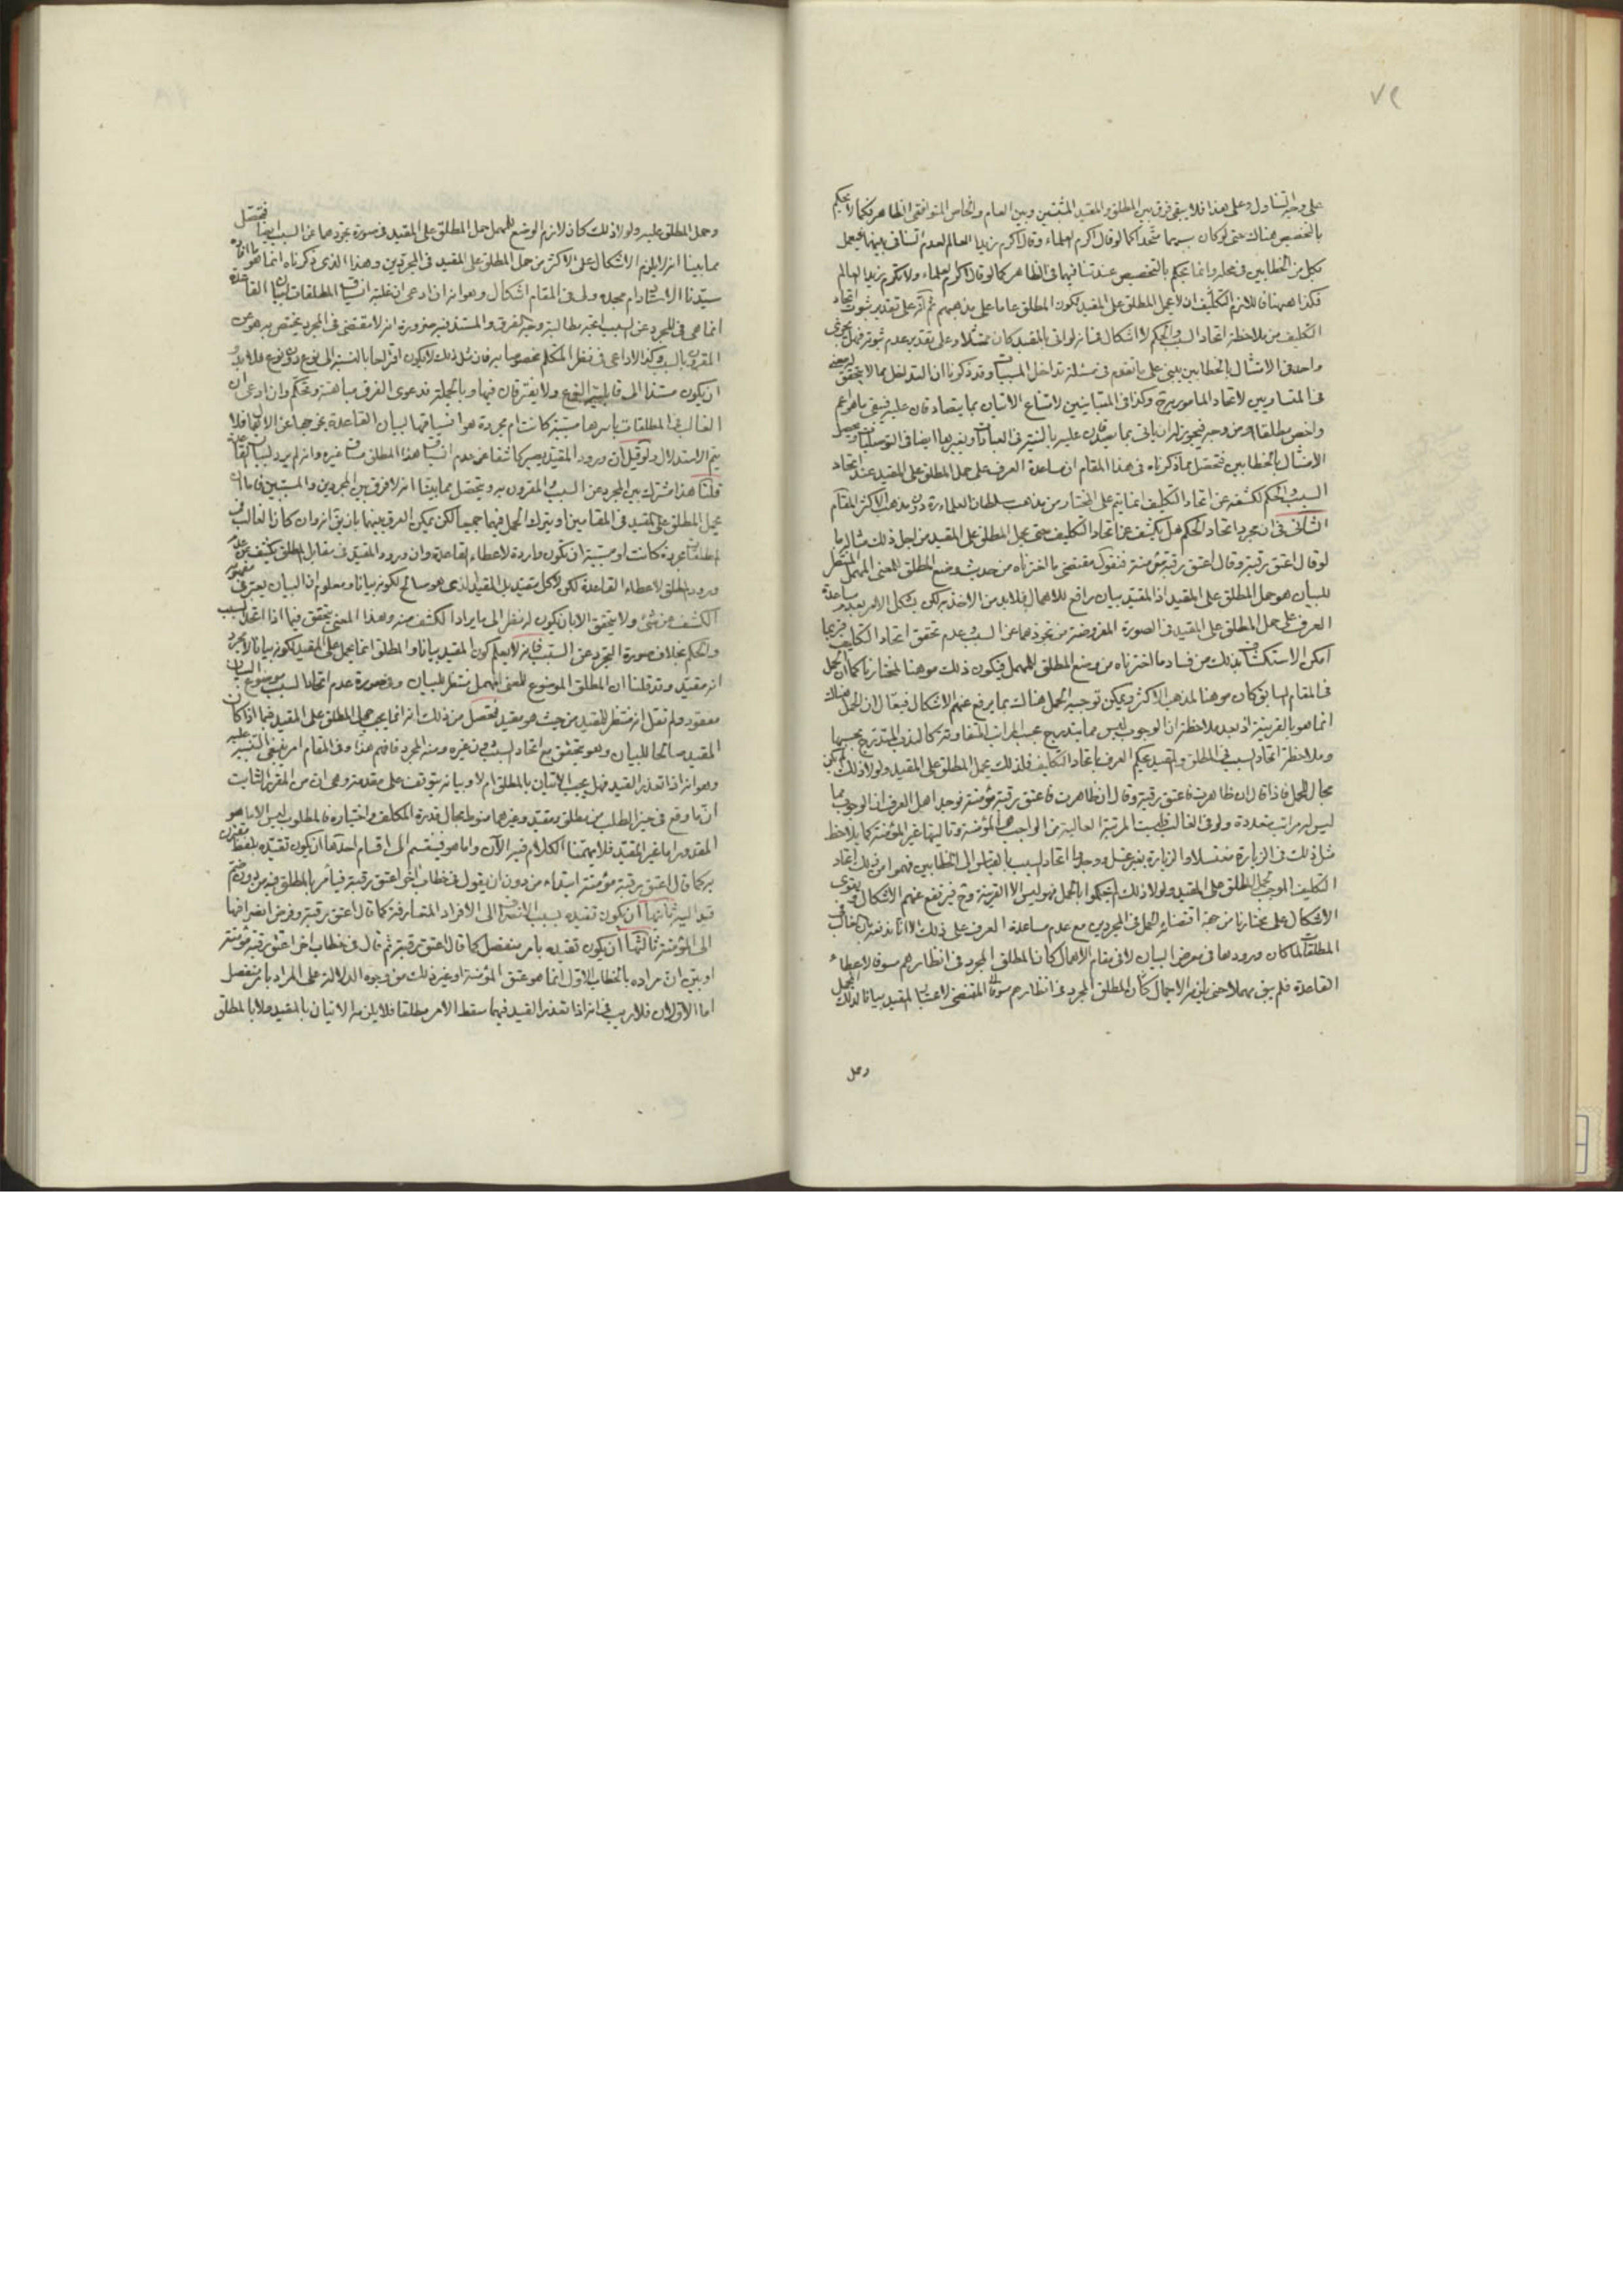 ٧٢
على وجه التناول وعلى هذا فلا يبقى فرق بين المطلق والمقيد المثبتين وبين العام والخاص المتوافقى الظاهر فكما لا يحكم
بالتخصيص هناك حتى لو كان سببهما متحدا كما لو قال اكرم العلماء وقال اكرم زيدا العالم لعدم تناف بينهما فيعمل
بكل من الخطابين فى محله وانما يحكم بالتخصيص عند تنافيهما فى الظاهر كما لو قال اكرم العلماء ولا تكرم زيدا العالم
فكذا ههنا فان للازم التكليف ان لا يحمل المطلق على المقيد لكون المطلق عاما على مذهبهم ثم انه على تقدير ثبوت اتحاد
التكليف من ملاحظة اتحاد السبب والحكم لا اشكال فى انه لو اتى بالمقيد كان ممتثلا وعلى تقدير عدم ثبوته فهل يجزى
واحد فى الامتثال بالخطابين يبنى على ما تقدم فى مسئلة تداخل المسببات وقد ذكرنا ان التداخل مما لا يتحقق
فى المتساويين لاتحاد المامور به وكذا فى المتباينين لامتناع الاتيان بما يتصادقان عليه فبقى ما هو اعم
واخص مطلقا او من وجه فيجوز له ان ياتى بما يصدقان عليه بالنية فى العبادات وبغيرها ايضا فى التوصليات ويحصل
الامتثال بالخطابين فتحصل مما ذكرناه فى هذا المقام ان مساعدة العرف على حمل المطلق على المقيد عند اتحاد
السبب والحكم لكشفه عن اتحاد التكليف انما يتم على المختار ومن مذهب سلطان العلماء ره دون مذهب الاكثر المقام
الثانى فى ان مجرد اتحاد الحكم هل يكشف عن اتحاد التكليف حتى يحمل المطلق على المقيد من اجل ذلك مثاله ما
لو قال اعتق رقبة وقال اعتق رقبة مؤمنة فنقول مقتضى ما اخترناه من حديث وضع المطلق للمعنى المهمل المنتظر
للبيان هو حمل المطلق على المقيد اذ المقيد بيان رافع للاهمال فلا بد من الاخذ به لكن يشكل الامر بعدم مساعدة
العرف على حمل المطلق على المقيد فى الصورة المفروضة من تجردهما عن السبب وعدم تحقق اتحاد التكليف فربما
امكن الاستكشاف بذلك من فساد ما اخترناه من وضع المطلق للمهمل فيكون ذلك موهنا لمختارنا كما ان الحمل
فى المقام السابق كان موهنا لمذهب الاكثر ويمكن توجيه الحمل هنالك بما يرفع عنهم الاشكال فيقال ان الحمل هناك
انما هو بالقرينة اذ بعد ملاحظة ان الوجوب ليس مما يتدرج بحسب المراتب المتفاوتة كالندب المتدرج بحسبها
وملاحظة اتحاد السبب فى المطلق والمقيد يحكم العرف باتحاد التكليف فلذلك يحمل المطلق على المقيد ولولا ذلك لم يكن
مجال للحمل فاذا قال ان ظاهرت فاعتق رقبة وقال ان ظاهرت فاعتق رقبة مؤمنة فوجد اهل العرف ان الوجوب مما
ليس له مراتب متعددة
مثل ذلك فى الزيارة مغتسلا والزيارة بغير غسل ووجدوا اتحاد السبب بالقياس الى الخطابين فهموا من ذلك اتحاد
التكليف الموجب لحمل المطلق على المقيد ولولا ذلك لم يحكموا بالحمل فهو ليس الا القرينة وح فيرتفع عنهم الاشكال ويقوى
الاشكال على مختارنا من جهة اقتضائه الحمل فى المجردين مع عدم مساعدة العرف على ذلك الا انا ندفعه بان غالب
المطلقات لما كان ورودها فى معرض البيان لا فى مقام الاهمال كان المطلق المجرد فى انظارهم مسوقا لاعطاء
القاعدة فلم يبق مهملا
وحمل
وحمل المطلق عليه ولولا ذلك كان لازم الوضع للمهمل حمل المطلق على المقيد فى صورة تجردهما عن السبب ايضا فتحصل
مما بينا انه لا يلزم الاشكال على الاكثر من حمل المطلق على المقيد فى المجردين وهذا الذى ذكرناه انما هو ما افاده
سيدنا الاستاد دام مجده ولى فى المقام اشكال وهو انه ان ادعى ان غلبة انسياق المطلقات لبيان القاعدة
انما هى فى المجرد عن السبب اتجه مطالبة وجه الفرق
المقرون بالسبب
ان يكون مستندا الى قابلية النوع ولا يفترقان فيها وبالجملة فدعوى الفرق مباهتة وتحكم وان ادعى ان
الغالب فى المطلقات باسرها مسببة كانت ام مجردة هو انسياقها لبيان القاعدة
يتم الاستدلال ولو قيل ان ورود المقيد يصير كاشفا عن عدم انسياق هذا المطلق مساق غيره وانه لم يرد لبيان القاعدة
قلنا هذا مشترك بين المجرد عن السبب والمقرون به ويتحصل مما بينا انه لا فرق بين المجردين والمسببين فاما ان
يحمل المطلق على المقيد فى المقامين او يترك الحمل فيهما جميعا لكن يمكن الفرق بينهما بان يق انه وان كان الغالب فى
المطلقات مجردة كانت او مسببة ان تكون واردة لاعطاء القاعدة وان ورود المقيد فى مقابل المطلق يكشف عن عدم
ورود المطلق لاعطاء القاعدة لكن لا كل مقيد بل المقيد الذى هو صالح لكونه بيانا ومعلوم ان البيان يعتبر فى مفهومه
الكشف عن شئ ولا يتحقق الا بان يكون له نظر الى ما يراد الكشف عنه وهذا المعنى يتحقق فيما اذا اتحد السبب
والحكم بخلاف صورة التجرد عن السبب فانه لا يعلم كون المقيد بيانا والمطلق انما يحمل على المقيد لكونه بيانا لا لمجرد
انه مقيد وقد قلنا ان المطلق الموضوع للمعنى المهمل منتظر للبيان وفى صورة عدم اتحاد السبب موضوع البيان
مفقود ولم نقل انه منتظر للمقيد من حيث هو مقيد فتحصل من ذلك انه انما يجب حمل المطلق على المقيد فيما اذا كان
المقيد صالحا للبيان وهو يتحقق مع اتحاد السبب دون غيره ومنه المجرد فافهم هذا وفى المقام امر ينبغى التنبيه عليه
وهو انه اذا تعذر القيد فهل يجب الاتيان بالمطلق ام لا وبيانه يتوقف على مقدمة وهى ان من المقرر الثابت
ان ما وقع فى حيز الطلب من مطلق ومقيد وغيرهما منوط بحال قدرة المكلف واختياره فالمطلوب ليس الا ما هو
المقدور اما غير المقيد فلا يهمنا الكلام فيه الآن واما هو فينقسم الى اقسام احدها ان يكون تقييده بلفظ مقترن
به كما قال اعتق رقبة مؤمنة ابتداء من دون ان يقول فى خطاب اخر اعتق رقبة فيأمر بالمطلق فيه من دون ضم
قيد اليه ثانيها ان يكون تقييده بسبب الانصراف الى الافراد المتعارفة كما قال اعتق رقبة وفرض انصرافها
الى المؤمنة ثالثها ان يكون تقييده بامر منفصل كما قال اعتق رقبة ثم قال فى خطاب اخر اعتق رقبة مؤمنة
او بين ان مراده بالخطاب الاول انما هو عتق المؤمنة او غير ذلك من وجوه الدلالة على المراد بامر منفصل
اما الاولان فلا ريب فى انه اذا تعذر القيد فيهما سقط الامر مطلقا فلا يلزمه الاتيان بالمقيد ولا بالمطلق